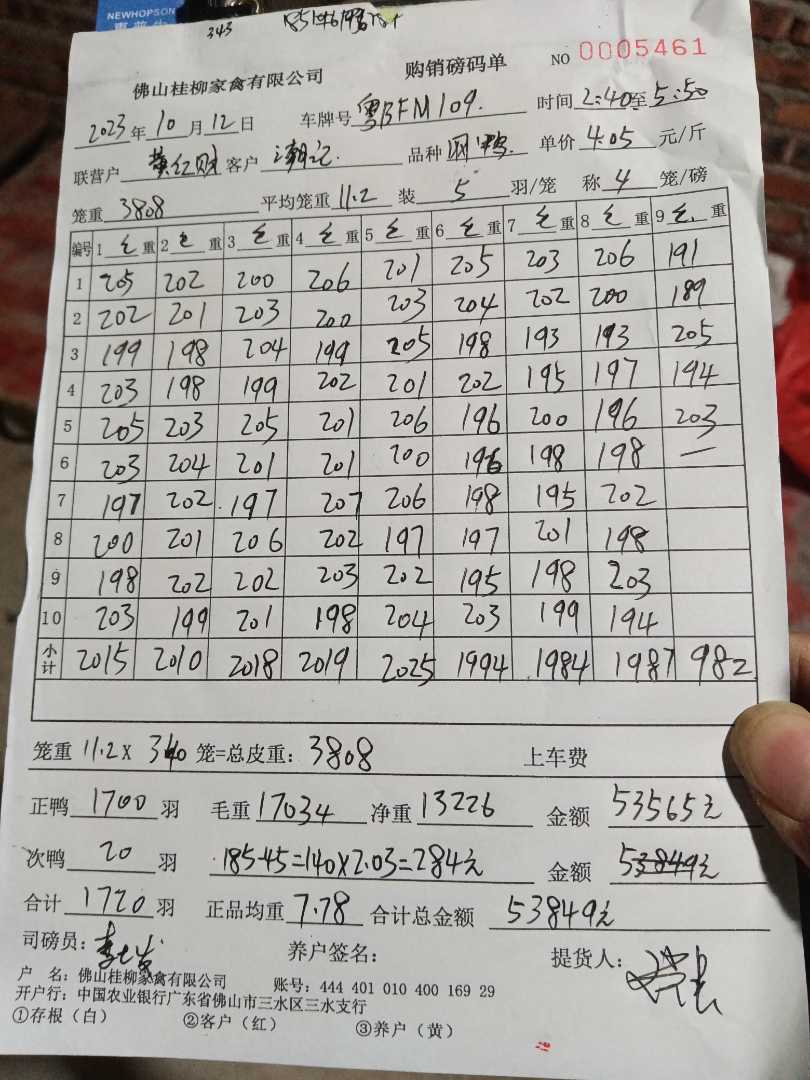 NEWHOPSON
343
佛山桂柳家禽有限公司 购销磅码单 NO 0005461
2023年10月12日 车牌号粤BFM109. 时间2:40至5:50
联营户黄红财客户 品种 单价4.05元/斤
笼重3808 平均笼重11.2装5羽/笼 称4笼/磅
编号 1 重 2 重 3 重 4 重 5 重 6 重 7 重 8 重 9 重
1 205 202 200 206 201 205 203 206 191
2 202 201 203 200 203 204 202 200 189
3 199 198 204 199 205 198 193 193 205
4 203 198 199 202 201 202 195 197 194
5 205 203 205 201 206 196 200 196 203
6 203 204 201 201 200 196 198 198 —
7 197 202 197 207 206 198 195 202
8 200 201 206 202 197 197 201 198
9 198 202 202 203 202 195 198 203
10 203 199 201 198 204 203 199 194
小计 2015 2010 2018 2019 2025 1994 1984 1987 982
笼重11.2×340笼=总皮重:3808 上车费
正鸭1700羽 毛重17034净重13226 金额53565元
次鸭20羽 185-45=140×2.03=284元 金额53849元
合计1720羽 正品均重7.78合计总金额53849元
司磅员: 养户签名: 提货人:
户 名:佛山桂柳家禽有限公司 账号:444 401 010 400 169 29
开户行:中国农业银行广东省佛山市三水区三水支行
①存根(白) ②客户(红) ③养户(黄)